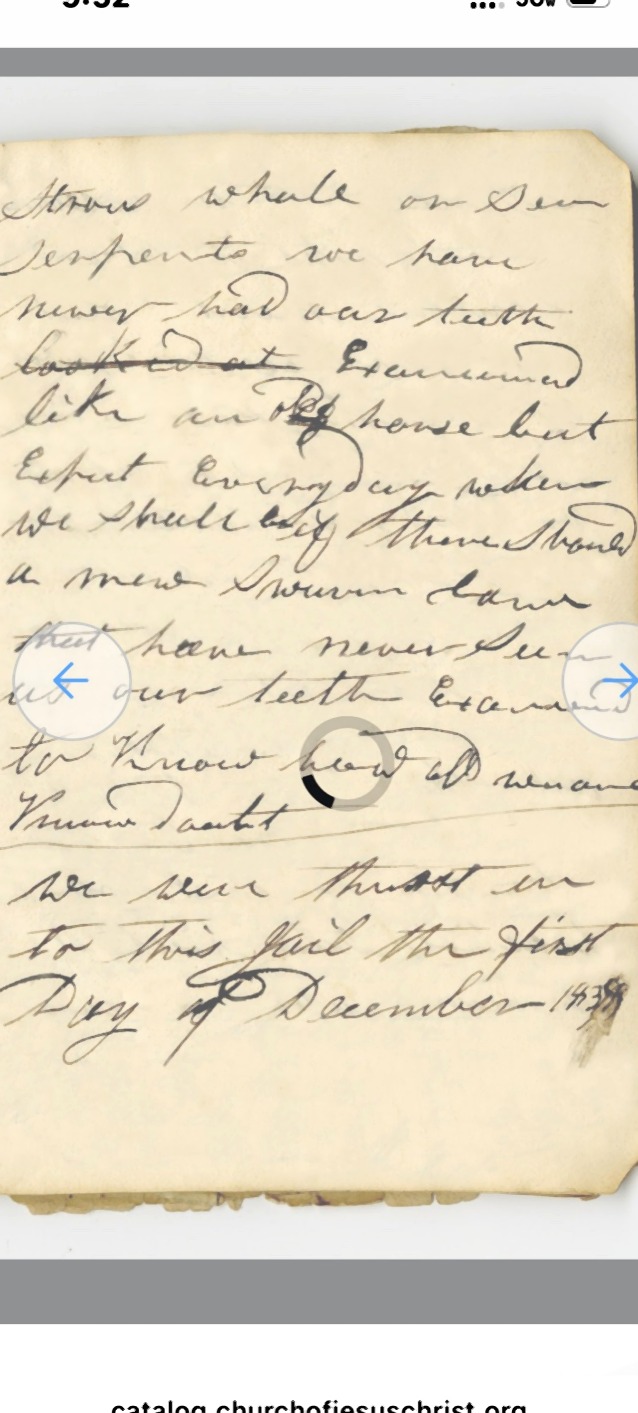 5:52
5GW
strous whale or Sea
serpents we have
never had our teeth
looked at Examined
like an old horse but
Expect Every day when
we shall be if there should
a new swarm come
that have never Seen
us our teeth Examined
to Know how old we are
Know doubt
we were thrust in
to this Jail the first
Day of December 1838
catalog.churchofjesuschrist.org